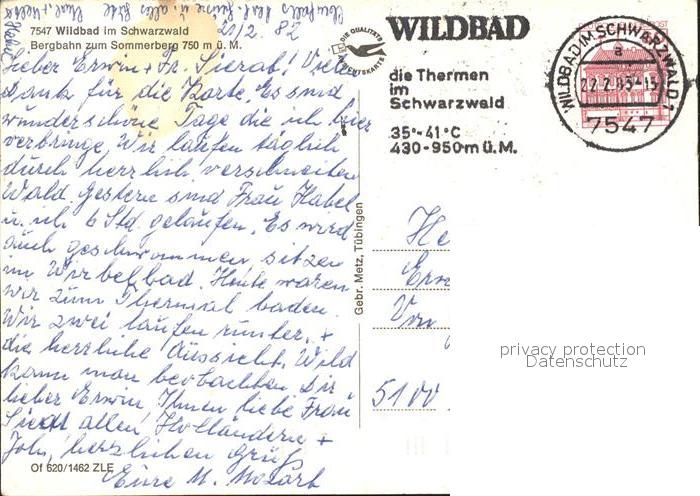 21/2. 82
7547 Wildbad im Schwarzwald
Bergbahn zum Sommerberg 750 m ü. M.
Lieber Erwin + Fr. Vielen
Dank für die Karte. Es sind
wunderschöne Tage die ich hier
verbringe. Wir laufen täglich
durch herrlich verschneiten
Wald. Gestern sind Frau Habel
u. ich 6 Std. gelaufen. Es wird
auch geschwommen, sitzen
im Wirbelbad. Heute waren
wir zum Thermal baden.
Wir zwei laufen runter, +
die herrliche Aussicht. Wild
kann man beobachten Dir
lieber Erwin, Ihnen liebe Frau
allen Holländern +
Joh, herzlichen Gruß
Eure M.
Of 620/1462 ZLE
Gebr. Metz, Tübingen
DIE QUALITÄTS
ANSICHTSKARTE
WILDBAD
die Thermen
im
Schwarzwald
35°-41°C
430-950m ü.M.
WILDBAD IM SCHWARZWALD 1
a
22.2.83-15
7547
He
Erw
Von
5100
privacy protection
Datenschutz